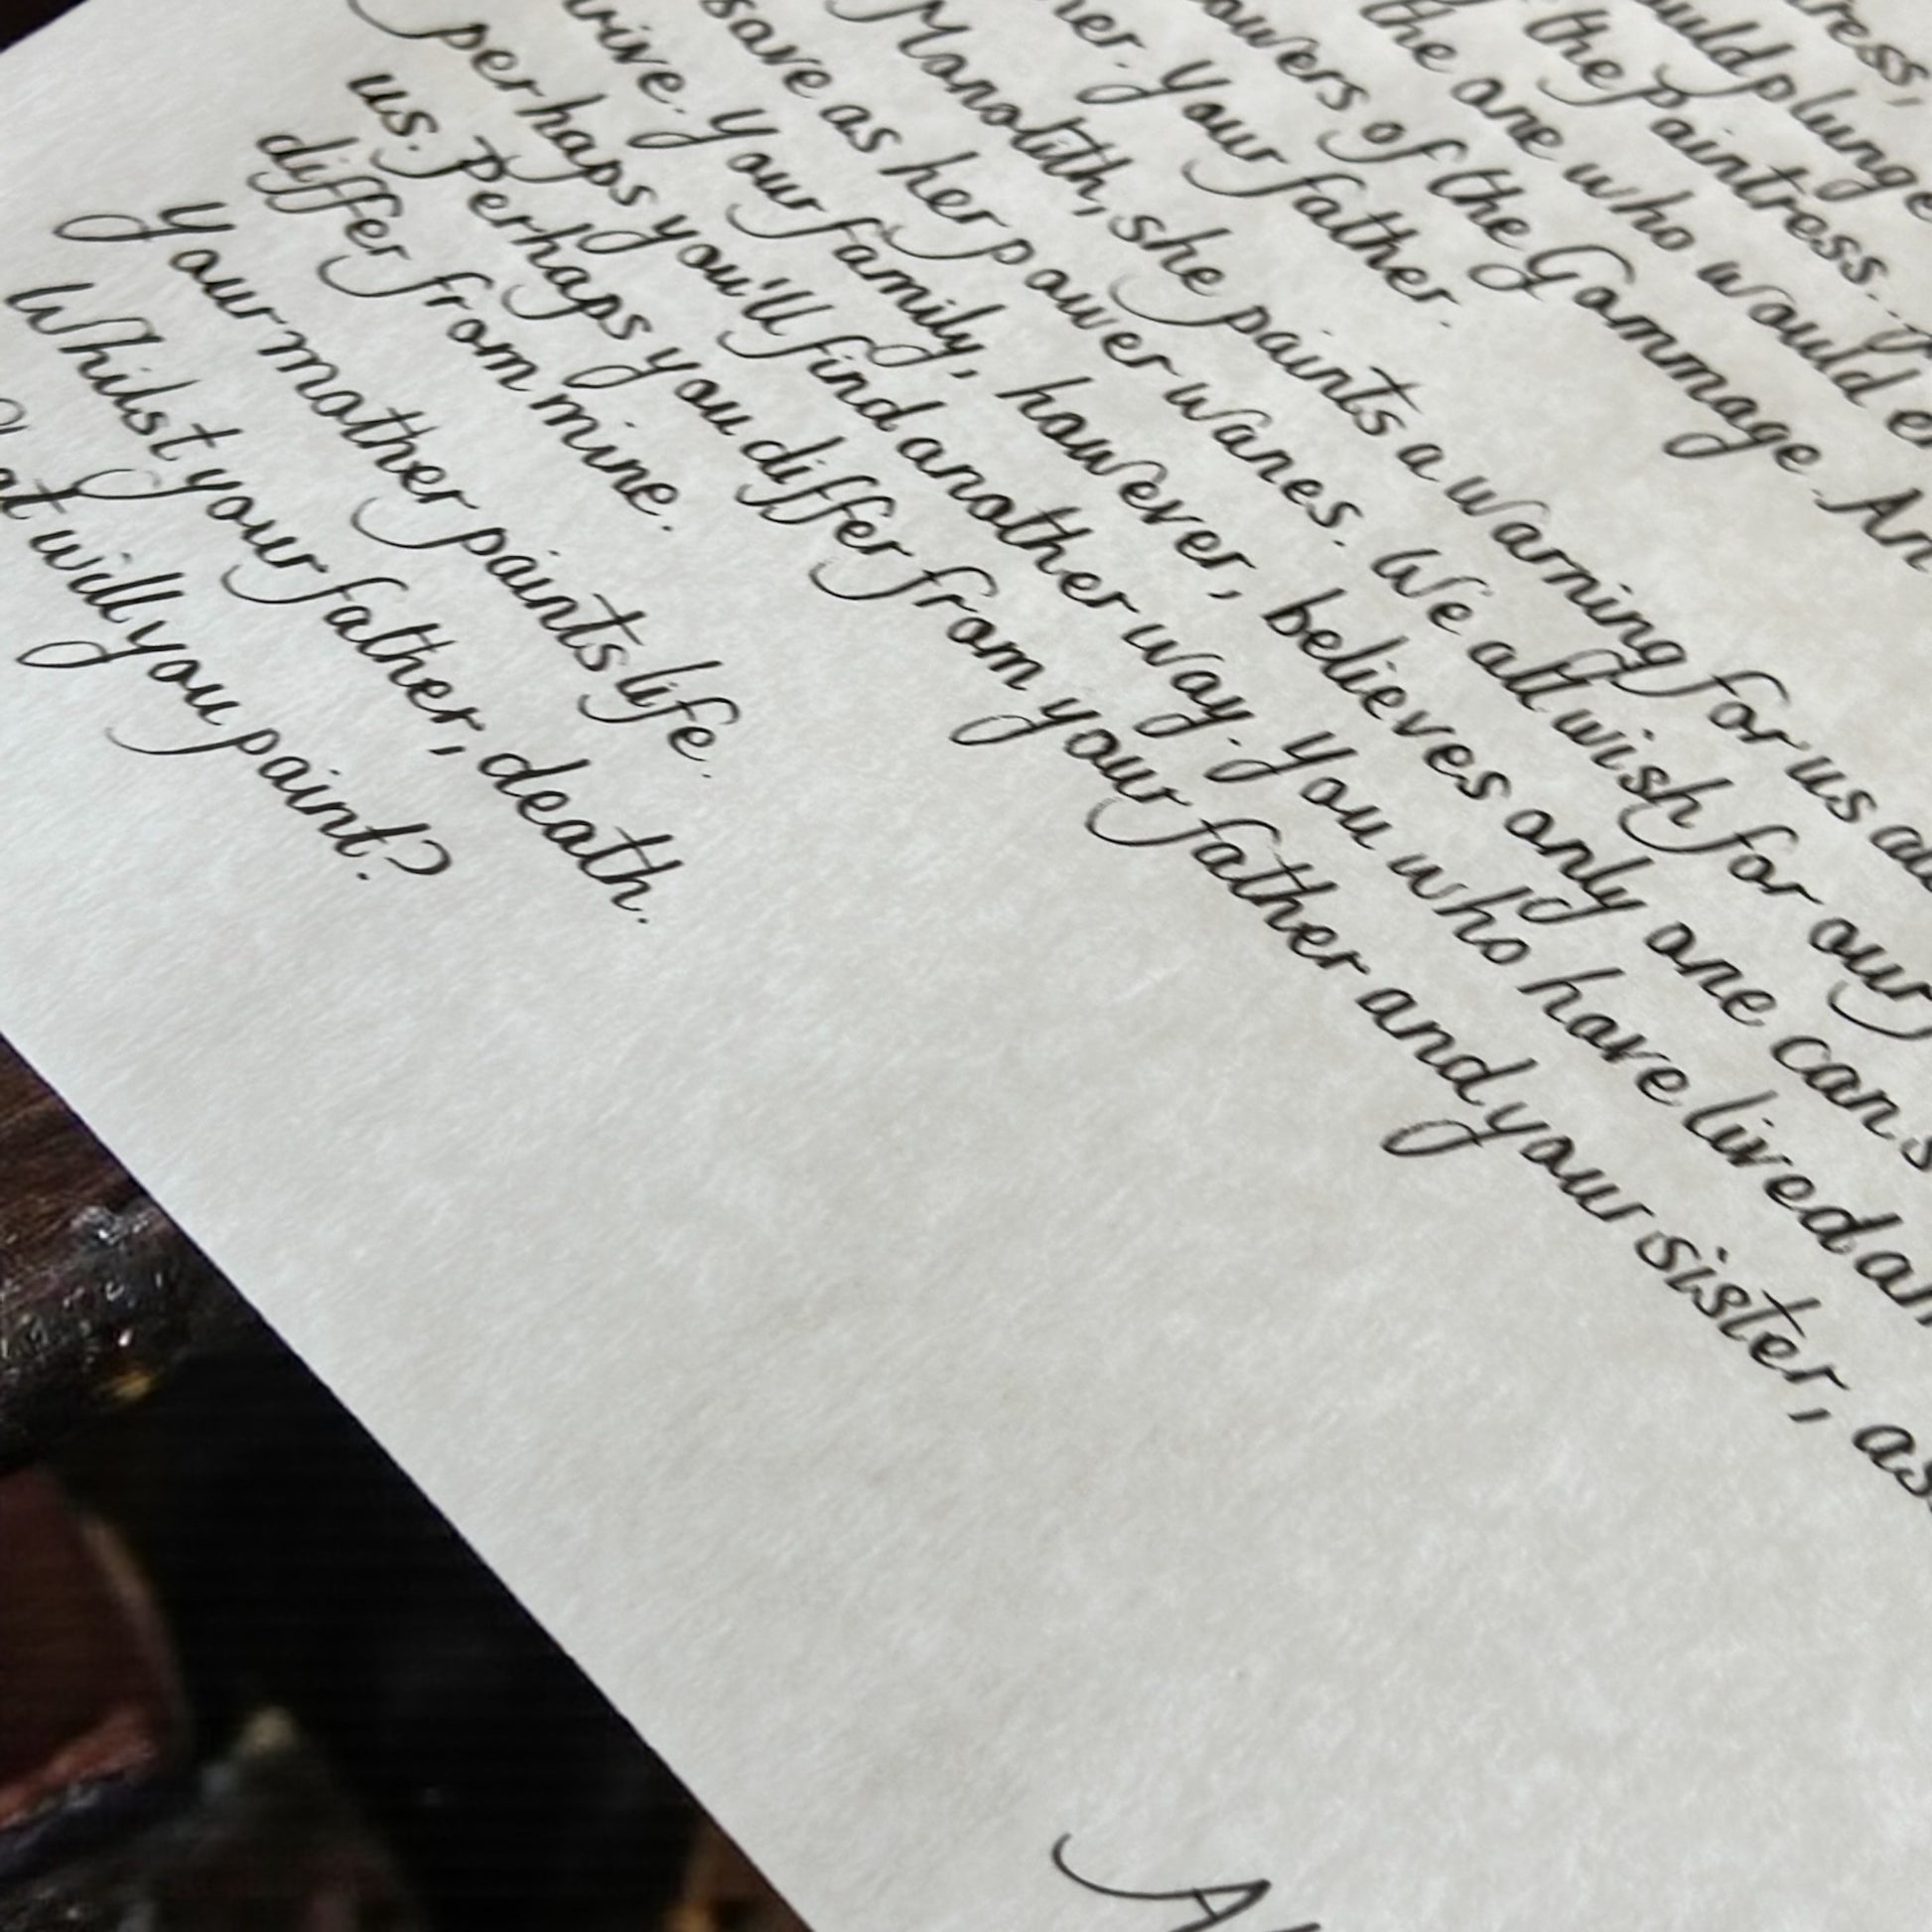 plunge
the Paintress.
the one who would
of the Gommage. An
Your father.
Monolith, she paints a warning for us
save as her power wanes. We all wish for our
Your family, however, believes only one can
perhaps you'll find another way. You who have lived
us. Perhaps you differ from your father and your sister, as
differ from mine.
Your mother paints life.
Whilst your father, death.
will you paint?